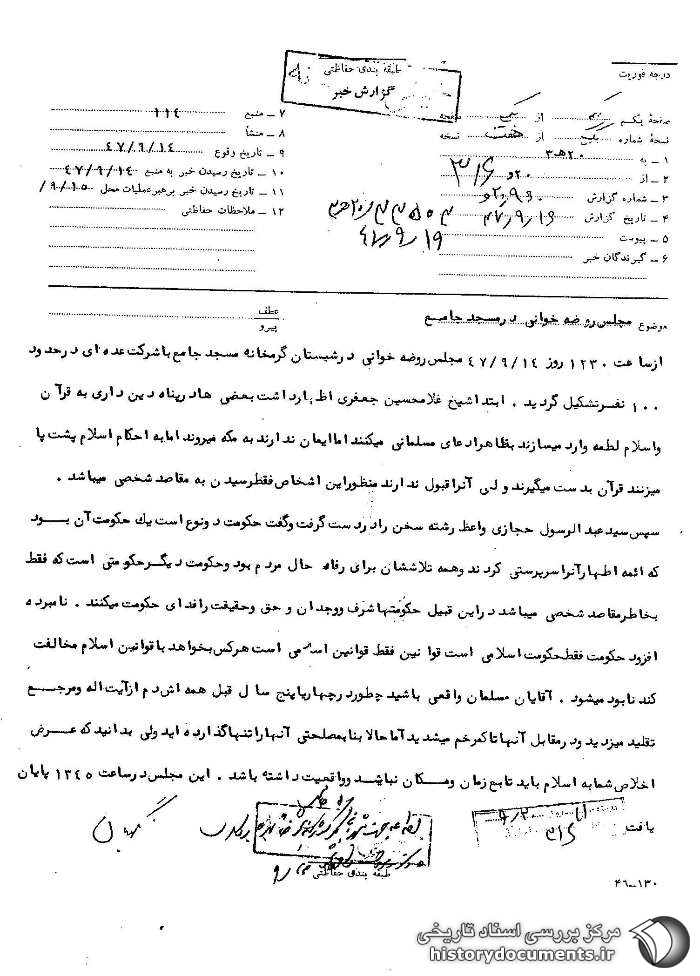 درجه فوریت
طبقه بندی حفاظتی
گزارش خبر
صفحه یکم از یک صفحه
نسخه شماره یک از هفت نسخه
۱ – به ۲۰ هـ ۳
۲ – از ۲۰ و ۳۱۶
۳ – شماره گزارش
۴ – تاریخ گزارش ۴۷٫۹٫۱۶
۵ – پیوست
۶ – گیرندگان خبر
۴۷٫۹٫۱۹
۷ – منبع ۱۱۴
۸ – منشأ
۹ – تاریخ وقوع ۴۷/۹/۱۴
۱۰ – تاریخ رسیدن خبر به منبع ۴۷/۹/۱۴
۱۱ – تاریخ رسیدن خبر برهبر عملیات محل ۹/۱۵/
۱۲ – ملاحظات حفاظتی
موضوع مجلس روضه خوانی در مسجد جامع
عطف
پیرو
از ساعت ۱۲۳۰ روز ۴۷/۹/۱۴ مجلس روضه خوانی در شبستان گرمخانه مسجد جامع با شرکت عده ای در حدود
۱۰۰ نفر تشکیل گردید . ابتدا شیخ غلامحسین جعفری اظهار داشت بعضی ها در پناه دین داری به قرآن
و اسلام لطمه وارد میسازند بظاهر ادعای مسلمانی میکنند اما ایمان ندارند به مکه میروند اما به احکام اسلام پشت پا
میزنند قرآن بدست میگیرند ولی آنرا قبول ندارند منظور این اشخاص فقط رسیدن به مقاصد شخصی میباشد .
سپس سید عبدالرسول حجازی واعظ رشته سخن را در دست گرفت و گفت حکومت دو نوع است یک حکومت آن بود
که ائمه اطهار آنرا سرپرستی کردند و همه تلاششان برای رفاه حال مردم بود و حکومت دیگر حکومتی است که فقط
بخاطر مقاصد شخصی میباشد در این قبیل حکومتها شرف و وجدان و حق و حقیقت را فدای حکومت میکنند . نامبرده
افزود حکومت فقط حکومت اسلامی است قوانین فقط قوانین اسلامی است هرکس بخواهد با قوانین اسلام مخالفت
کند نابود میشود . آقایان مسلمان واقعی باشید چطور در چهار یا پنج سال قبل همه اش دم از آیت اله و مرجع
تقلید میزدید و در مقابل آنها تا کمر خم میشدید اما حالا بنا بمصلحتی آنها را تنها گذارده اید ولی بدانید که عرض
اخلاص شما به اسلام باید تابع زمان و مکان نباشد و واقعیت داشته باشد . این مجلس در ساعت ۱۳۴۵ پایان
یافت
۳۱۶
طبقه بندی حفاظتی
۴۶–۱۳۰
مرکز بررسی اسناد تاریخی
historydocuments.ir